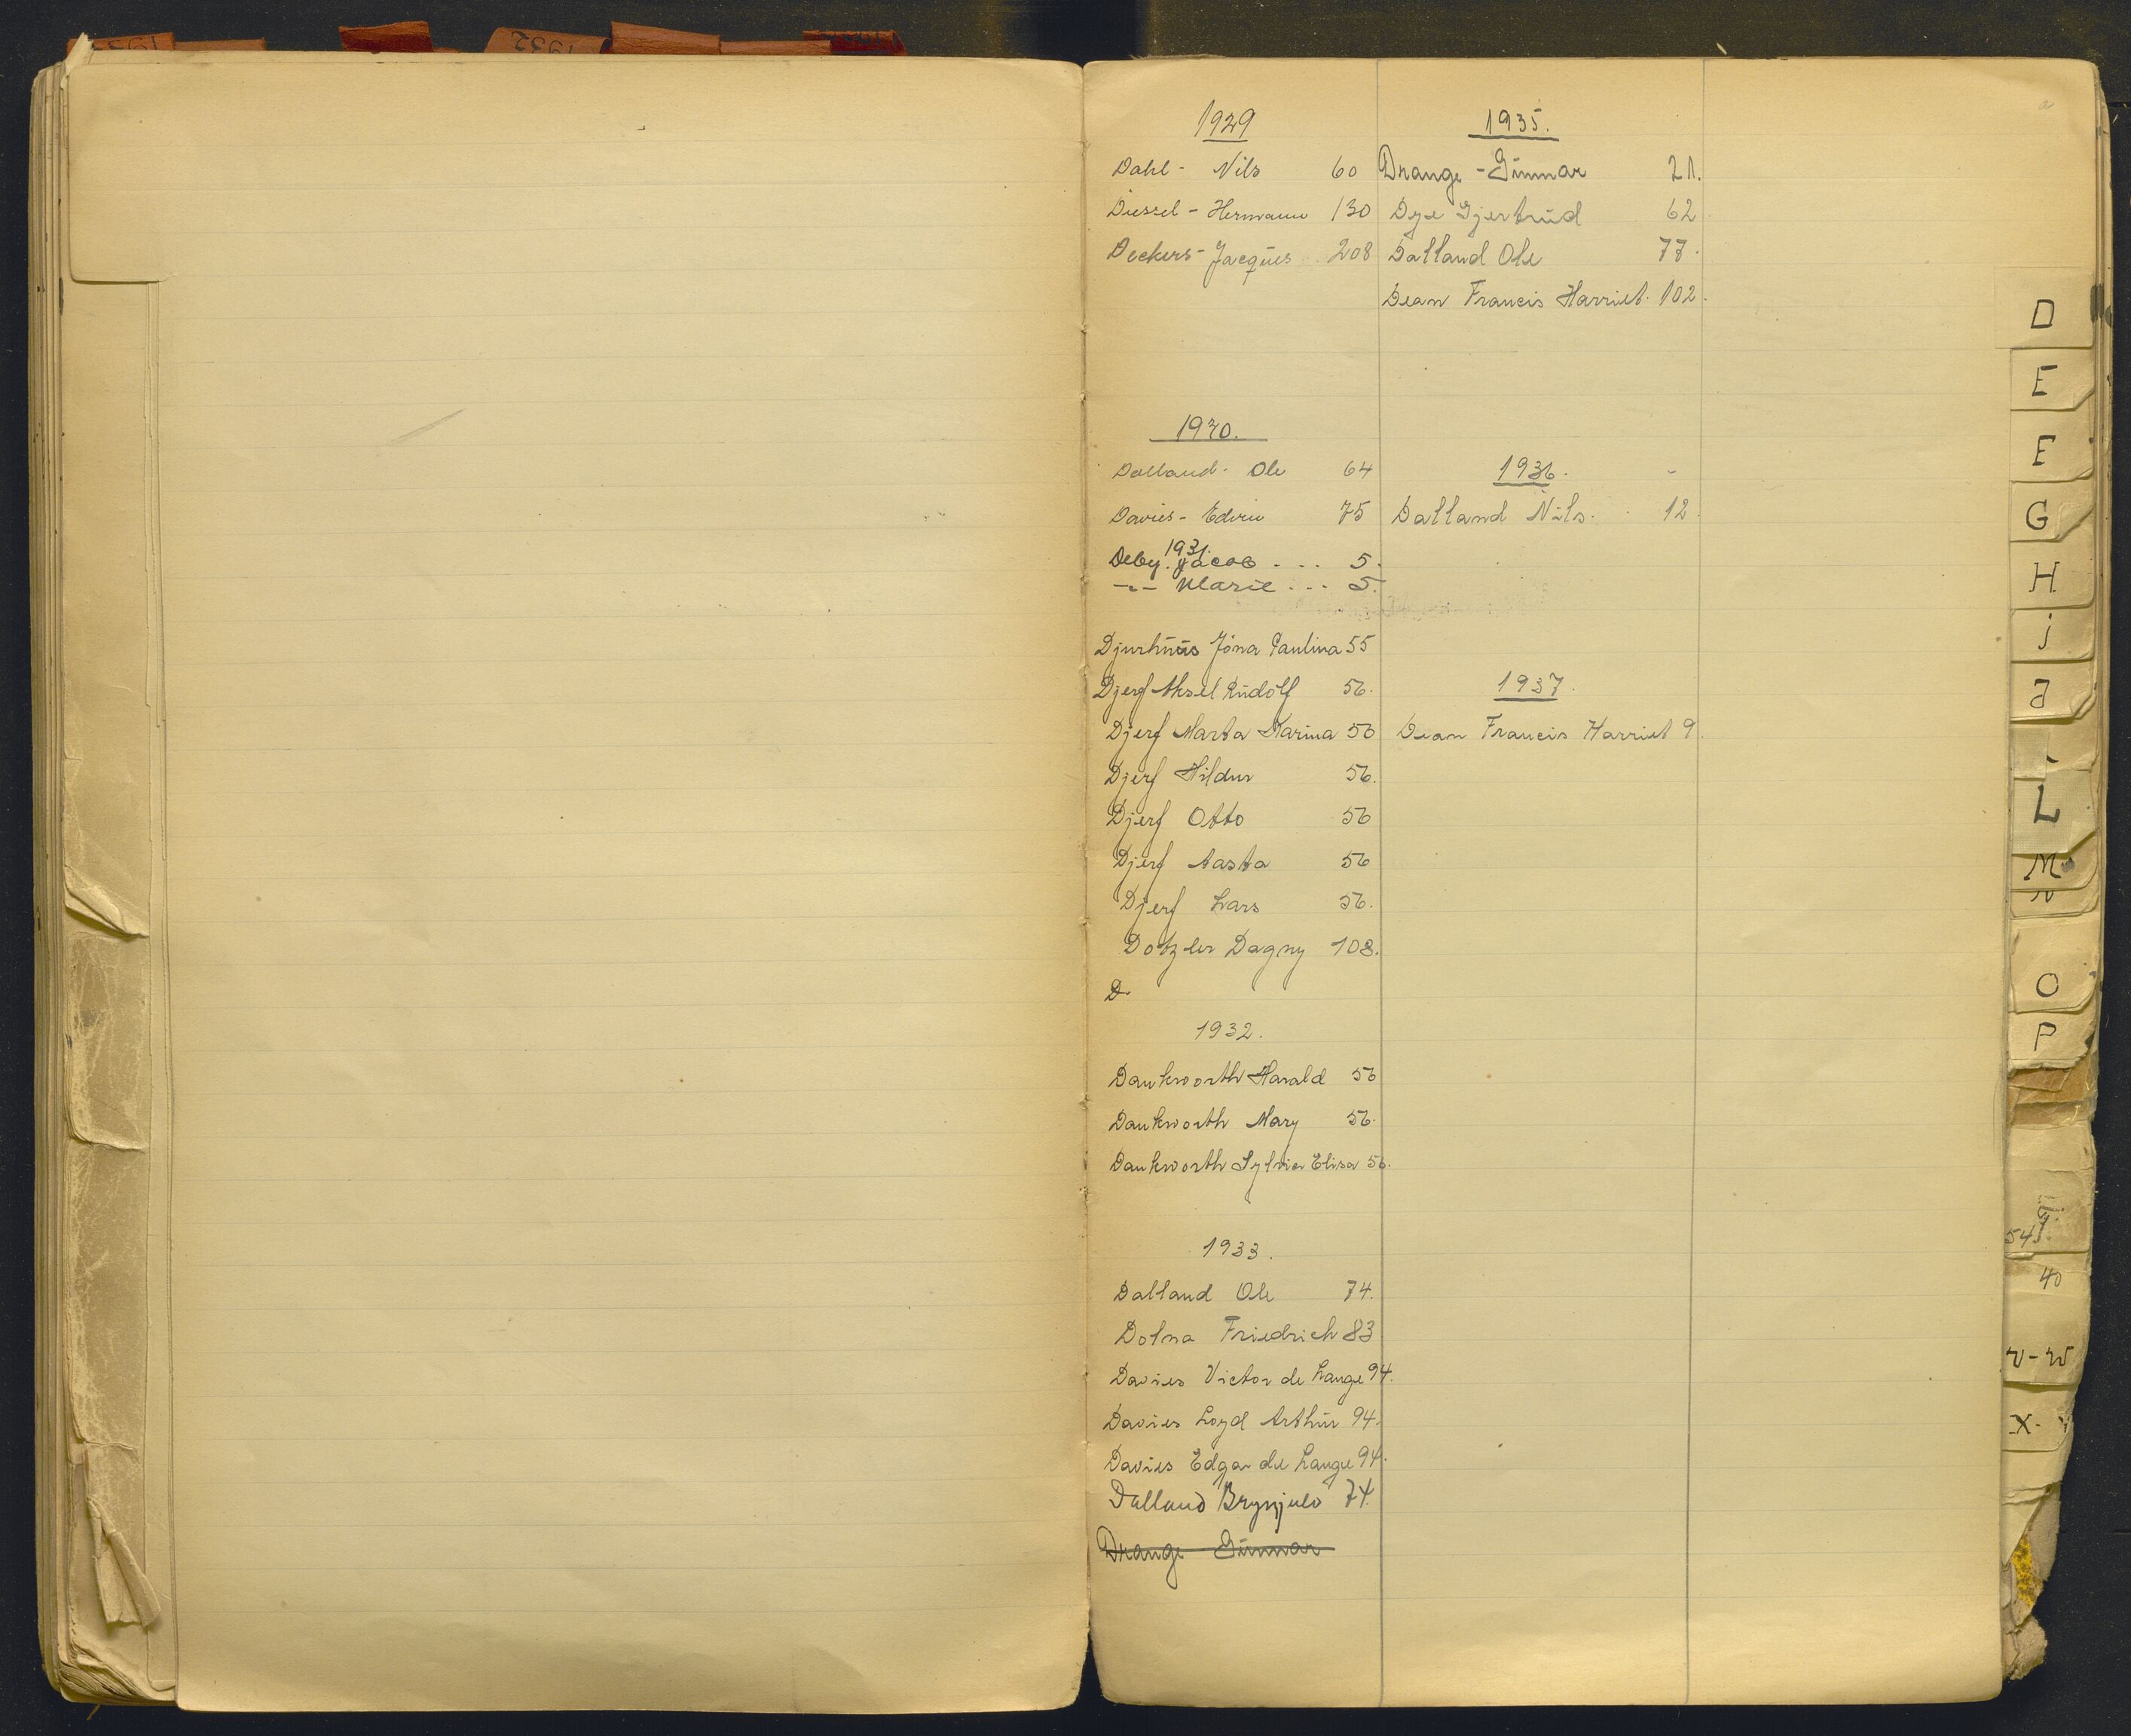 1929
Dahl - Nils 60
Diessel - Hermann 130
Deckers - Jacques 208
1930.
Dalland - Ole 64
Davies - Edvin 75
1931.
Deby. Jacob . . . 5.
-"- Marie . . . 5.
Djurhuus Jóna Paulina 55
Djerf Aksel Rudolf 56.
Djerf Marta Karina 56
Djerf Hildur 56.
Djerf Otto 56
Djerf Aasta 56
Djerf Lars 56.
Dotzler Dagny 108.
D
1932.
Dankworth Harald 56
Dankworth Mary 56.
Dankworth Sylvia Elisa 56.
1933.
Dalland Ole 74.
Dolna Friedrich 83
Davies Victor de Lange 94.
Davies Loyd Arthur 94.
Davies Edgar de Lange 94.
Dalland Brynjulv 74.
Drange Gunnar
1935.
Drange - Gunnar 21.
Dye Gjertrud 62.
Dalland Ole 77.
Dean Francis Harriet. 102.
1936.
Dalland Nils. 12.
1937.
Dean Francis Harriet 9.
D
E
F
G
H
i
J
L
M
N
O
P
40
V-W
X-
1932